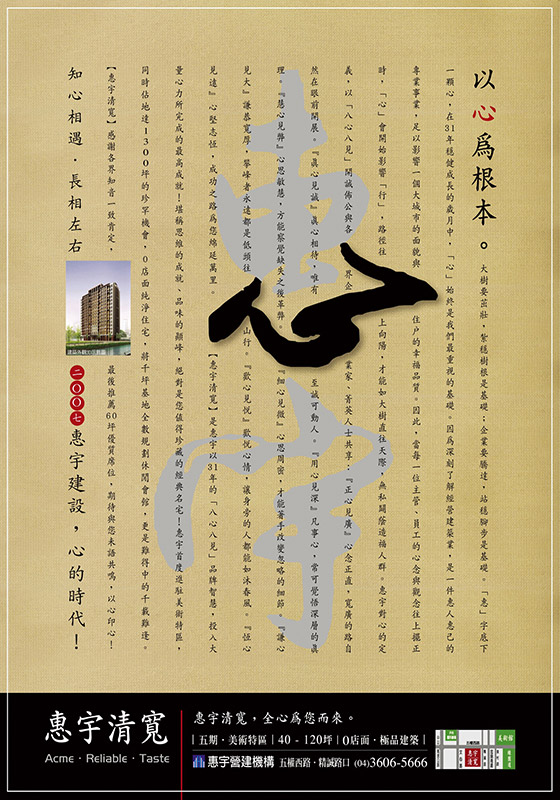 以心為根本。
大樹要茁壯，紮穩樹根是基礎；企業要騰達，站穩腳步是基礎。「惠」字底下
一顆心，在31年穩健成長的歲月中，「心」始終是我們最重視的基礎。因為深刻了解經營建築業，是一件惠人惠己的
專業事業，足以影響一個大城市的面貌與
住戶的幸福品質。因此，當每一位主管、員工的心念與觀念往上擺正
時，「心」會開始影響「行」，路徑往
上向陽，才能如大樹直往天際，無私開蔭造福人群。惠宇對心的定
義，以「八心八見」開誠佈公與各
界企
業家、菁英人士共享：『正心見廣』心念正直，寬廣的路自
然在眼前開展。『真心見誠』真心相待，唯有
至誠可動人。『用心見深』凡事心，常可覺悟深層的真
理。『慧心見弊』心思敏慧，方能察覺缺失之後革弊。
『細心見微』心思周密，才能著手改變忽略的細節。『謙心
見大』謙恭寬厚，攀峰者永遠都是低頭往
山行。『歡心見悅』歡悅心情，讓身旁的人都能如沐春風。『恆心
見遠』心堅志恆，成功之路為您綿延萬里。
【惠宇清寬】是惠宇以31年的「八心八見」品牌智慧，投入大
量心力所完成的最高成就！堪稱思維的成就、品味的顛峰，絕對是您值得珍藏的經典名宅！惠宇首度進駐美術特區，
同時佔地達1300坪的珍罕機會，0店面純淨住宅，將千坪基地全數規劃休閒會館，更是難得中的千載難逢。
【惠宇清寬】感謝各界知音一致肯定，
最後推薦60坪優質席位，期待與您來語共鳴，以心印心！
知心相遇．長相左右
二〇〇七惠宇建設，心的時代！
惠
心
時
建品外觀3D示意圖
惠宇清寬
Acme · Reliable · Taste
惠宇清寬，全心為您而來。
|五期．美術特區| 40 - 120坪 |0店面．極品建築|
惠宇營建機構 五權西路．精誠路口 (04)3606-5666
美術館
惠宇
清寬